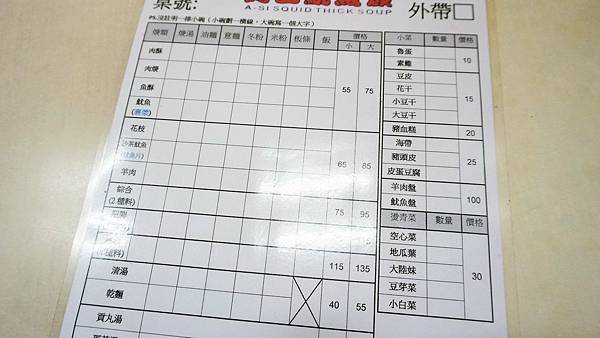 桌號:
A-SI SQUID THICK SOUP
外帶□
PS.沒註明一律小碗（小碗劃一橫線，大碗寫一個大字）
燴類 燴湯 油麵 意麵 冬粉 米粉 板條 飯 價格
小 大
肉酥
肉燴
魚酥 55 75
魷魚
花枝
沙茶魷魚 65 85
羊肉
綜合 75 95
(2種料)
115 135
清湯
乾麵 40 55
貢丸湯
小菜 數量 價格
魯蛋 10
素雞
豆皮
花干 15
小豆干
大豆干
豬血糕 20
海帶
豬頭皮 25
皮蛋豆腐
羊肉盤 100
魷魚盤
燙青菜 數量 價格
空心菜
地瓜葉
大陸妹 30
豆芽菜
小白菜